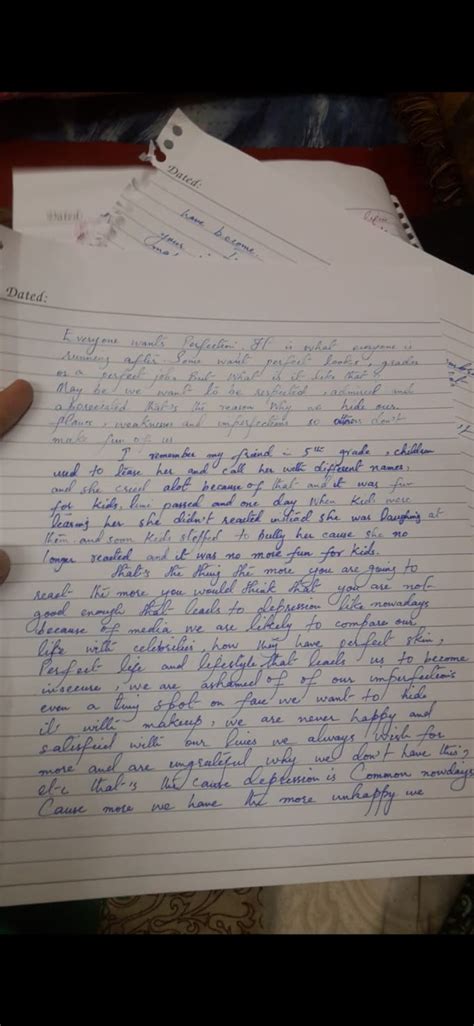 Dated:
have become
your
Dated:
Everyone wants Perfection. It is what everyone is
running after Some want perfect looks, grades
or a perfect job. But What is it like that so
May be we want to be respected, admired and
appreciated that's the reason Why we hide our
flaws, weaknesses and imperfections so others don't
make fun of us
I remember my friend in 5th grade, children
used to tease her and call her with different names,
and she cried alot because of that and it was fun
for kids, time passed and one day When kids were
tearing her she didn't reacted instead she was Laughing at
them and soon Kids stopped to bully her cause she no
longer reacted and it was no more fun for kids.
That's the thing the more you are going to
react the more you would think that you are not
good enough that leads to depression like nowadays
because of media we are likely to compare our
life with celebrities, how they have perfect skin,
Perfect life and lifestyle that leads us to become
insecure, we are ashamed of of our imperfections
even a tiny spot on face we want to hide
it with makeup, we are never happy and
satisfied with our lives we always wish for
more and are ungrateful why we don't have this?
etc that's the cause depression is Common nowdays
Cause more we have the more unhappy we